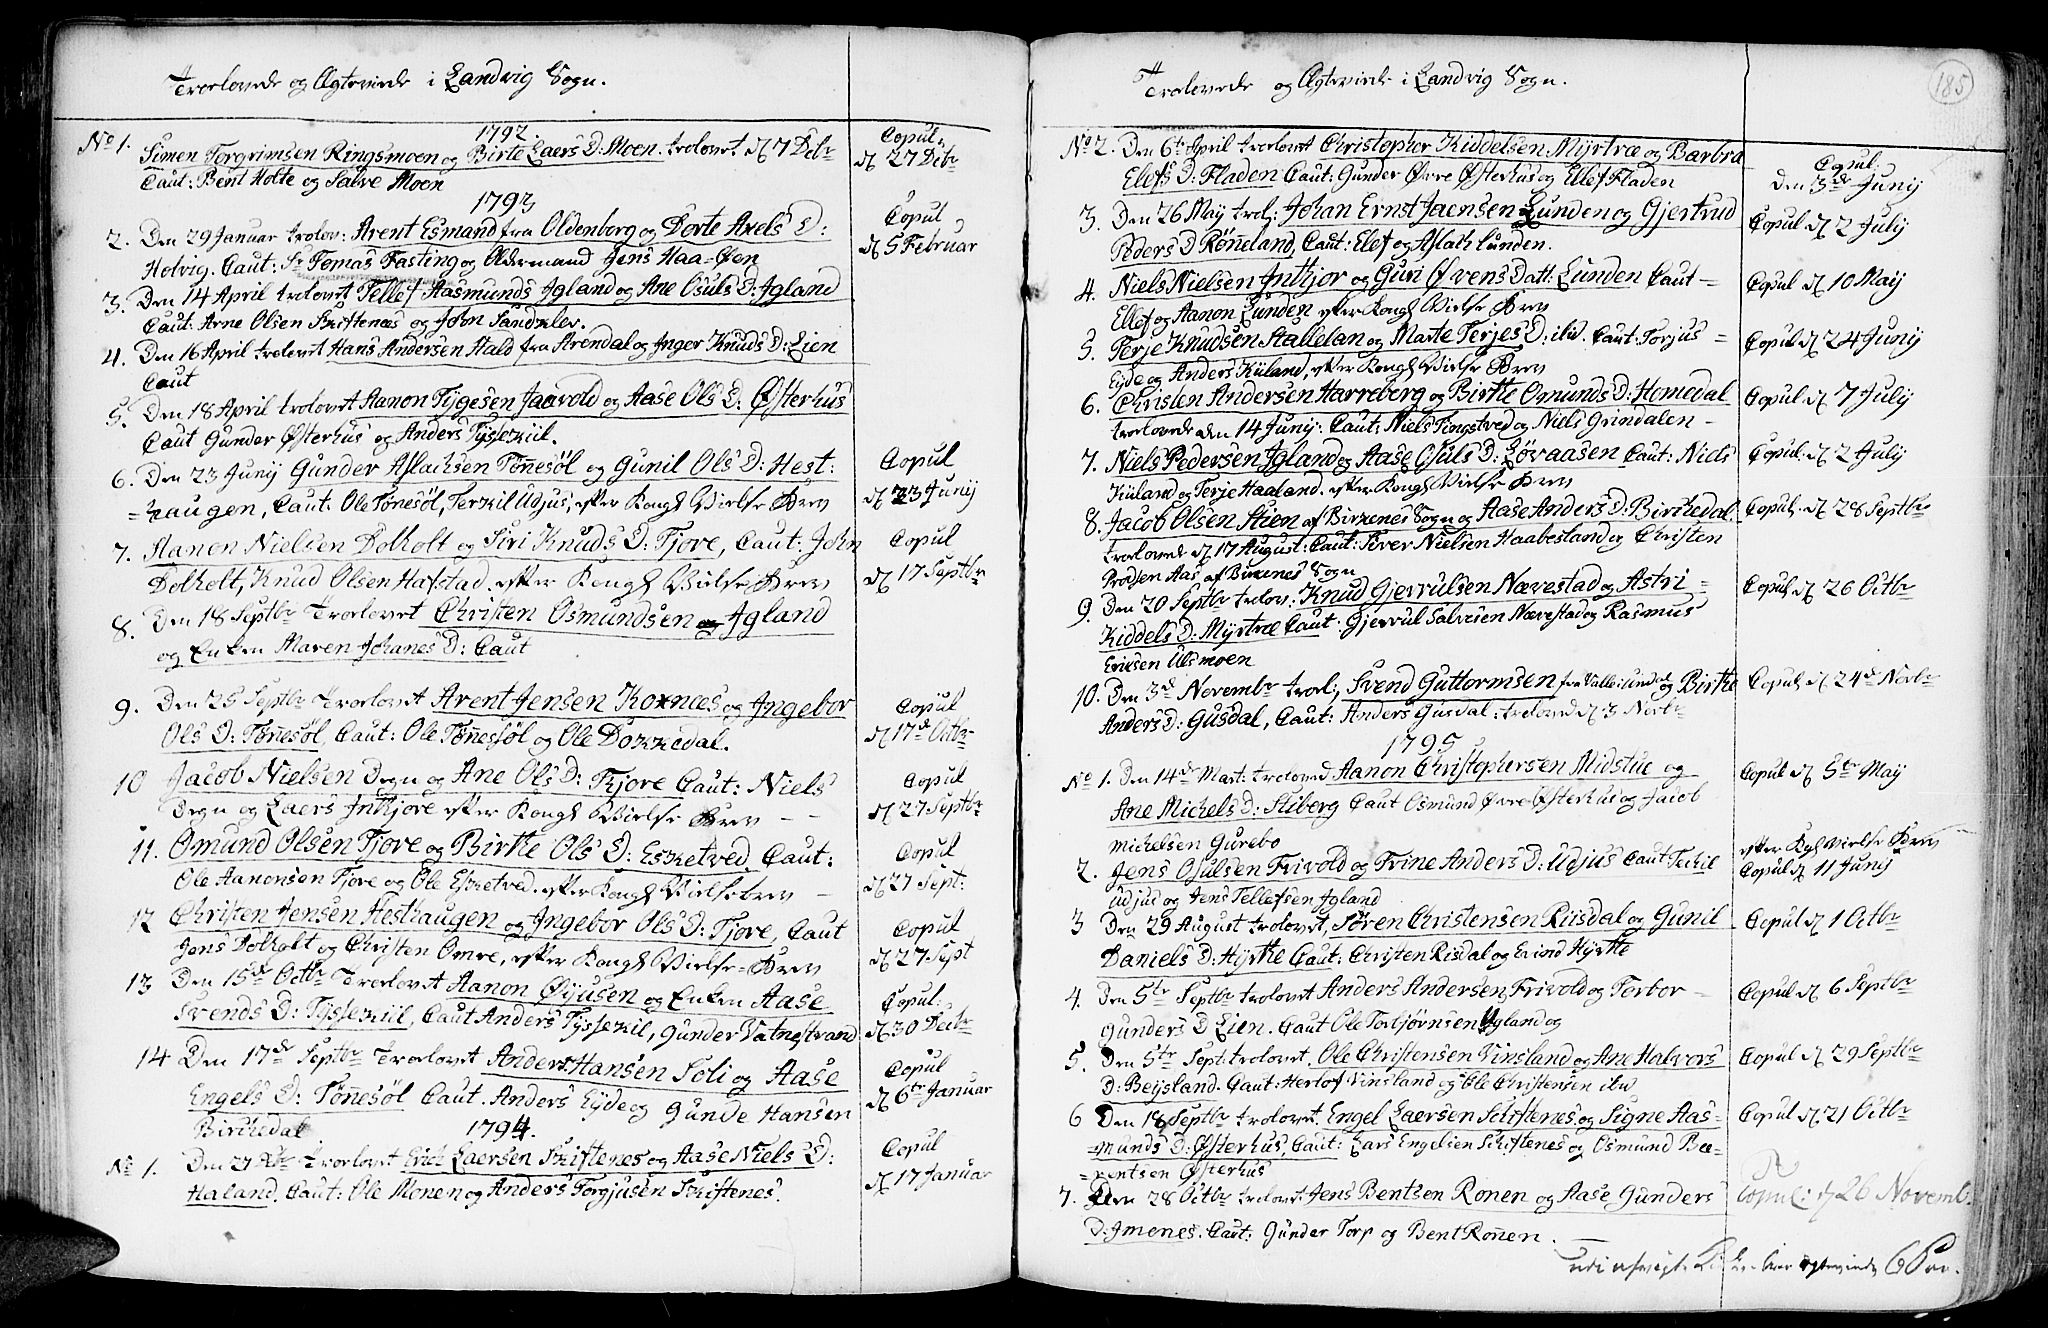 Troelovede og Ægteviede i Landvig Sogn.
1792
No 1. Simen Torgrimsen Ringsmoen og Birte Laers D: Moen. trolovet d 7 Debr
Caut: Bent Holte og Salve Moen
Copul.
d 27 Debr
1793
2. Den 29 Januar trolov: Arent Esmand fra Oldenborg og Dorte Axels D:
Holvig. Caut: Sr Tomas Fasting og Oldermand Jens Haa=Øen
Copul
d 5 Februar
3. Den 14 April trolovet Tellef Aasmunds Igland og Ane Osuls D: Igland
Caut: Arne Olsen Skiftenæs og John Sandklev.
4. Den 16 April trolovet Hans Andersen Hald fra Arendal og Inger Knuds D: Lien
Caut
5. Den 18 April trolovet Aanon Tygesen Jaavold og Aase Ols D: Østerhus
Caut Gunder Østerhus og Anders Tyssekiil.
6. Den 23 Junij Gunder Aslachsen Tønnesøl og Gunil Ols D: Hest:
=haugen, Caut. Ole Tønesøl, Terkil Udjus, efter Kongl Vielse Brev
Copul
d 23 Junij
7. Aanon Nielsen Dolholt og Siri Knuds D: Fjore, Caut: John
Dolholt, Knud Olsen Hafstad. efter Kongl Vielse Brev
Copul
d 17 Septbr
8. Den 18 Septbr Troelovet Christen Osmundsen Igland
og Enken Maren Johanes D: Caut
9. Den 25 Septbr Troelovet Arent Jensen Koknæs og Ingebor
Ols D: Tønnesøl, Caut: Ole Tønnesøl og Ole Dokkedal.
Copul
d 17de Octbr
10 Jacob Nielsen Degn og Ane Ols D: Fjore Caut: Niels
Degn og Laers Inthjore efter Kongl Vielse Brev - -
Copul
d 27 Septbr
11. Omund Olsen Fjore og Birthe Ols D: Esketved. Caut:
Ole Aanonsen Fjore og Ole Esketved. efter Kongl Vielsebrev -
Copul
d 27 Sept:
12 Christen Jensen Hesthaugen og Ingebor Ols D: Fjore, Caut
Jens Dolholt og Christen Omre, efter Kongl Vielse=Brev
Copul
d 27 Sept
13 Den 15de Octbr Troelovet Aanon Øyusen og Enken Aase
Svends D: Tyssekiil, Caut Anders Tyssekil, Gunder Vatnestrand
Copul.
d 30 Decbr
14 Den 17de Septbr Troelovet Anders Hansen Soli og Aase
Engels D: Tønnesøl Caut. Anders Eyde og Gunde Hansen
Birchedal
Copul
d 6te Januar
1794.
No 1. Den 27 Troelovet Erich Laersen Skiftenes og Aase Niels D:
Haland. Caut: Ole Monen og Anders Torgjusen Skiftenes.
Copul
d 17 Januar
Troelovede og Ægteviede i Landvig Sogn.
185
No 2. Den 6te April troelovet Christopher Kiddelsen Myrtræ og Barbra
Elefs D: Fladen Caut: Gunder Øvre Østerhus og Ellef Fladen
Copul.
Den 3de Junij
3. Den 26 Maÿ trol: Johan Ernst Jaensen Lunden og Gjertrud
Peders D Rønneland, Caut: Elef og Aslach Lunden.
Copul d 2 Julij
4. Niels Nielsen Inthjor og Guri Øvens Datt: Lunden Caut -
Ellef og Aanon Lunden efter Kongl Vielse Brev
Copul d 10 May
5. Terje Knudsen Stallelan og Marte Terjes D: ibid. Caut: Torjus =
Eyde og Anders Kuland, efter Kongl Vielse Brev
Copul d 24 Junij
6. Christen Andersen Harreberg og Birthe Omunds D: Homedal
troelovede den 14 Junij. Caut: Niels Tingstved og Niels Grindalen -
Copul d 7 Julij
7. Niels Pedersen Igland og Aase Osuls D: Løvaasen Caut: Niels
Kuland og Terje Haaland. efter Kongl Vielse Brev
Copul. d 2 Julij
8. Jacob Olsen Stien af Birkenes Sogn og Aase Anders D: Birchedal.
troelovede d 17 August: Caut: Siver Nielsen Haabesland og Christen
Brodsen Aas af Birkenes Sogn
Copul. d 28 Septbr
9. Den 20 Septbr trolov: Knud Gjerrulsen Nævestad og Astri =
Kiddels D: Myrtræ Caut: Gjerrul Salvesen Nævestad og Rasmus
Ericsen Ulsmoen
Copul d 26 Octbr
10. Den 3de Novembr trol: Svend Guttormsen fra Valle: Sundet og Birthe
Anders D: Gusdal, Caut: Anders Gusdal: troloved d 3 Novbr
Copul d 24de Novbr
1795
No 1. Den 14de Mart: troloved Aanon Christophersen Midstue og
Ane Michels D: Stiberg Caut Osmund Øvre Østerhus og Jacob
Michelsen Gurebo
Copul d 5te May
2. Jens Osulsen Frivold og Trine Anders D: Udjus Caut: Terkil
Udjud og Jens Tellefsen Igland
efter Kgl Vielse Brev
Copul d 11 Junij
3 Den 29 August trolovet, Søren Christensen Riisdal og Gunil
Daniels D: Hyrthe Caut: Christen Risdal og Eivind Hyrthe
Copul d 1 Octbr
4. Den 5te Septbr trolovet Anders Andersen Frivold og Torbor -
Gunders D Lien. Caut Ole Torbjørnsen Ugland og
Copul d 6 Septbr
5. Den 5te Sept. trolovet. Ole Christensen Vinsland og Ane Halvors
D: Beijsland. Caut: Herlof Vinsland og Ole Christensen ibid
Copul d 29 Septbr
6 Den 18 Septbr trolovet. Engel Laersen Schiftenes og Signe Aas=
=munds D: Østerhus, Caut: Lars Engelsen Schiftenes og Osmund Be=
=rentsen Østerhus
Copul d 21 Octbr
7. Den 28 Octbr trolovet Jens Bentsen Rønen og Aase Gunders
D: Imenes. Caut: Gunder Torp og Bent Rønen.
Copul: d 26 Novemb.
6 Par.